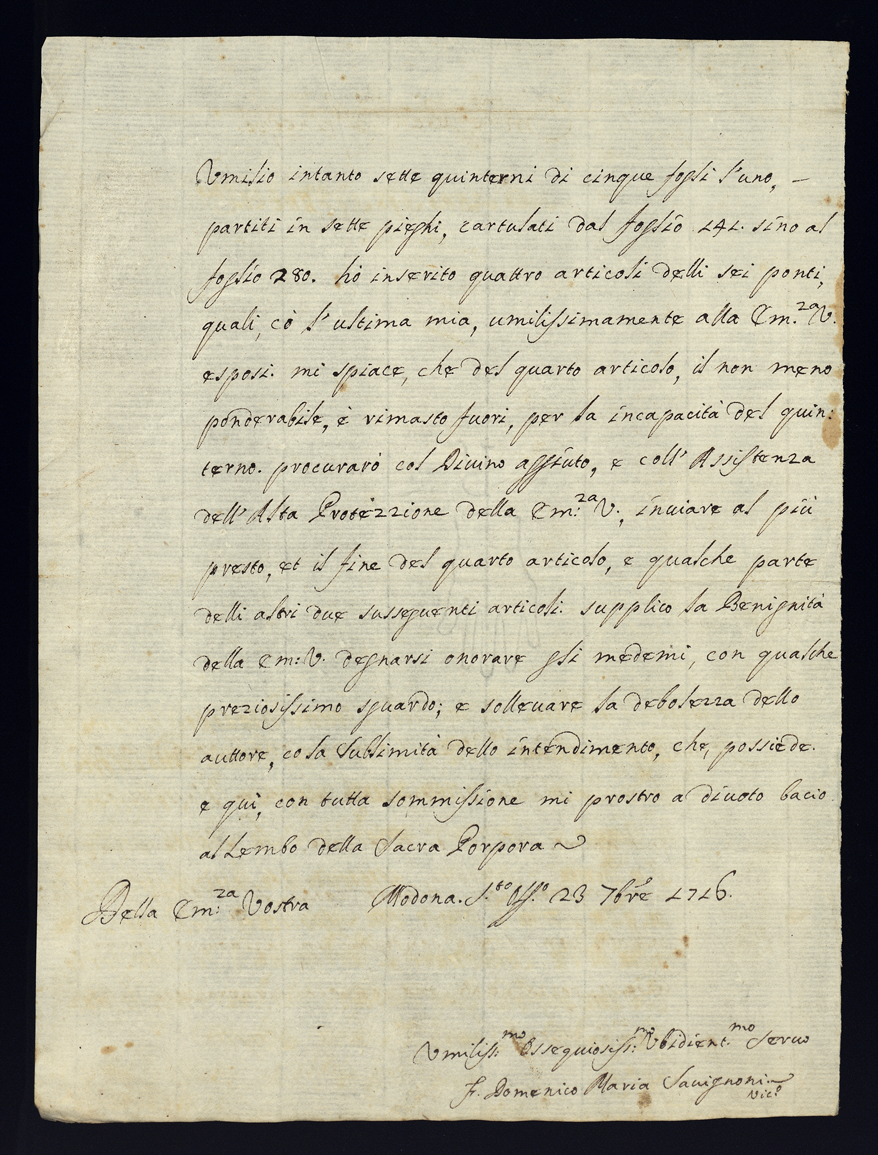 Umilio intanto sette quinterni di cinque fogli l'uno, –
partiti in sette pieghi, cartulati dal foglio 141. sino al
foglio 280. hò inserito quattro articoli delli sei ponti,
quali, cò l'ultima mia, umilissimamente alla Em:za V.
esposi. mi spiace, che del quarto articolo, il non meno
ponderabile, è rimasto fuori, per la incapacità del quin:
terno. procurarò col Divino aggiuto, e coll'Assistenza
dell'Alta Protezzione della Em:za V., inviare al più
presto, et il fine del quarto articolo, e qualche parte
delli altri due sussequenti articoli. supplico la Benignità
della Em: V. degnarsi onorare gli medemi, con qualche
preziosissimo sguardo; e sollevare la debolezza dello
auttore, co la Sublimità dello intendimento, che, possiede.
e quì, con tutta sommissione mi prostro a divoto bacio
al Lembo della Sacra Porpora
Della Em:za Vostra Modona. S.to Uff.o 23 7bre 1716.
Umiliss:mo Ossequiosiss:mo Ubidient.mo Servo
F. Domenico Maria Savignoni
Vic.o